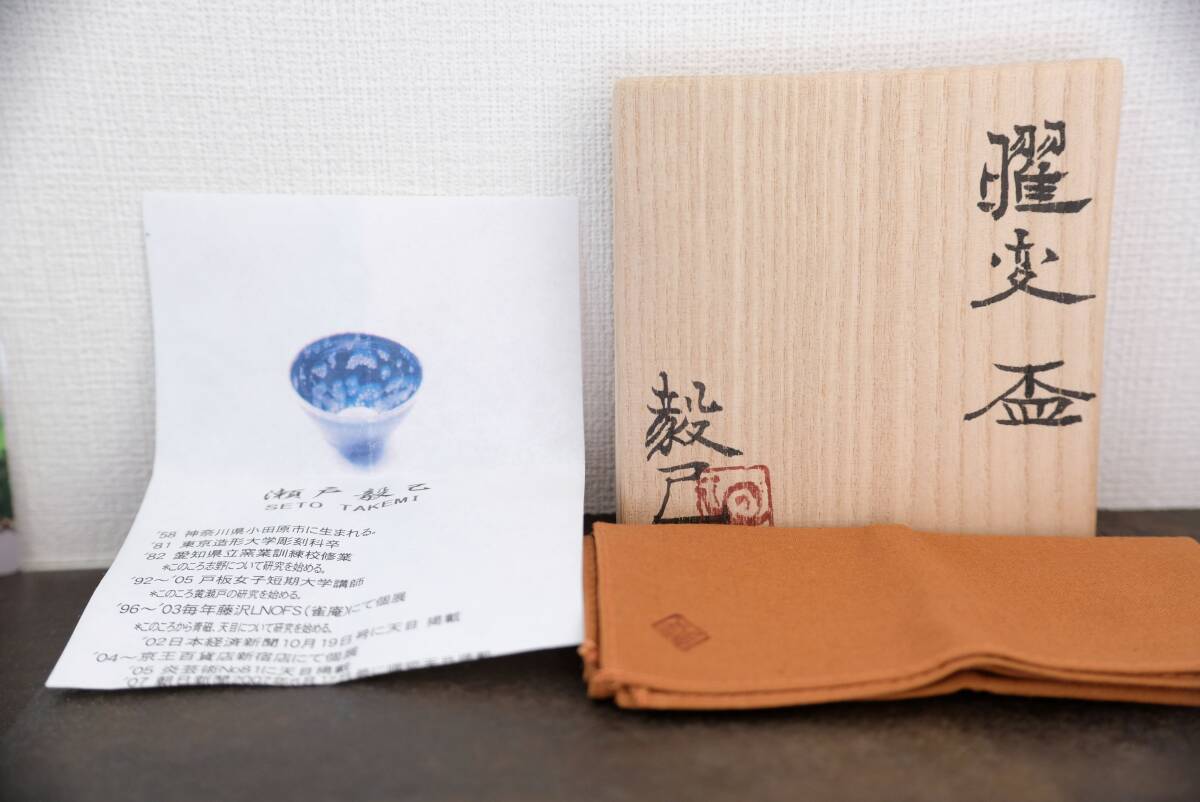 瀬戸毅己
SETO TAKEMI
'58 神奈川県小田原市に生まれる。
'81 東京造形大学彫刻科卒
'82 愛知県立窯業訓練校修業
*このころ志野について研究を始める。
'92～'05 戸板女子短期大学講師
*このころ黄瀬戸の研究を始める。
'96～'03毎年藤沢LNOFS(雀庵)にて個展
*このころから青磁、天目について研究を始める。
'02日本経済新聞10月19日号に天目 掲載
'04～京王百貨店新宿店にて個展
'05 炎芸術No81に天目掲載
'07 朝日新聞
曜変 盃
毅己